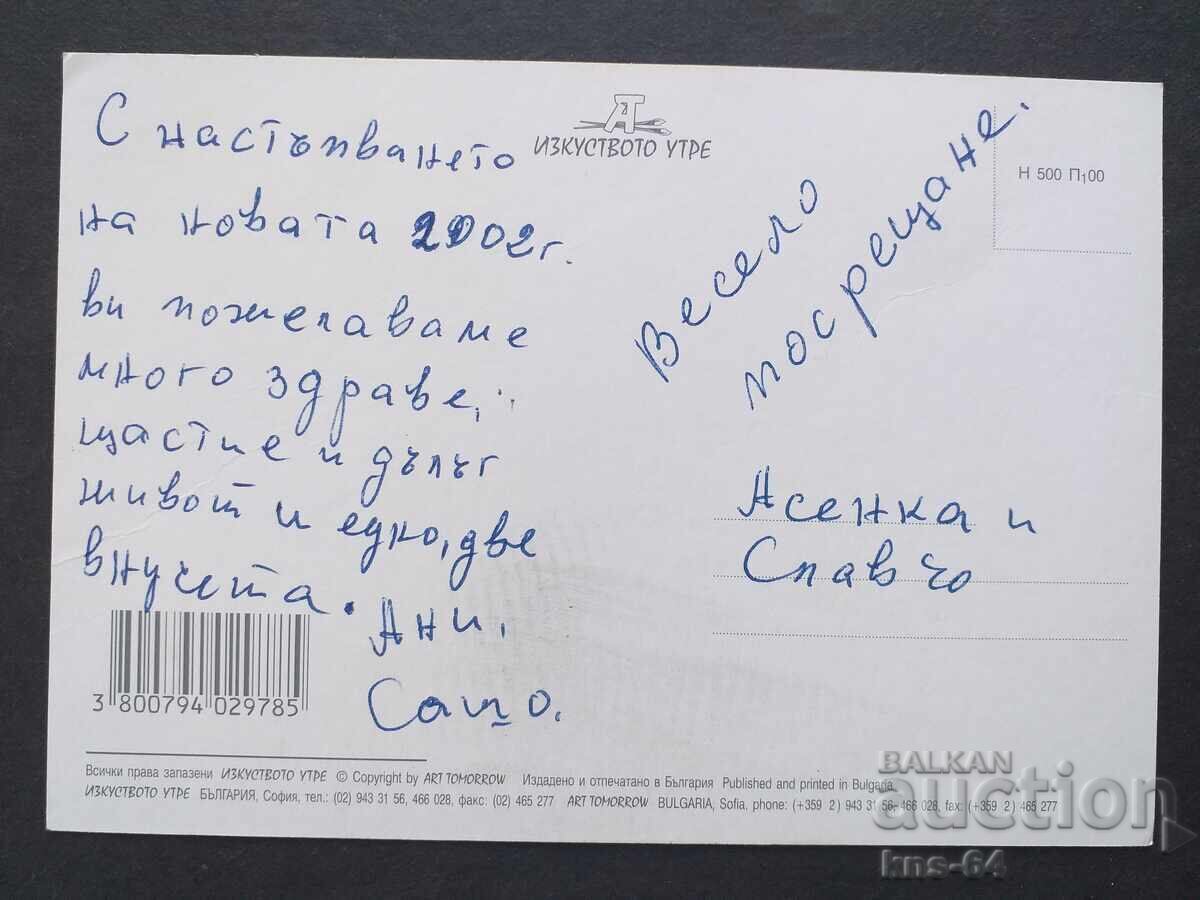 С настъпването
на новата 2002г.
ви пожелаваме
много здраве,
щастие и дълъг
живот и едно, две
внучета.
Ани,
Сашо.
AT
ИЗКУСТВОТО УТРЕ
Весело
посрещане.
Н 500 П100
Асенка и
Славчо
3 800794 029785
Всички права запазени ИЗКУСТВОТО УТРЕ © Copyright by ART TOMORROW Издадено и отпечатано в България Published and printed in Bulgaria.
ИЗКУСТВОТО УТРЕ БЪЛГАРИЯ, София, тел.: (02) 943 31 56, 466 028, факс: (02) 465 277 ART TOMORROW BULGARIA, Sofia, phone: (+359 2) 943 31 56, 466 028, fax: (+359 2) 465 277
BALKAN
auction
kns-64